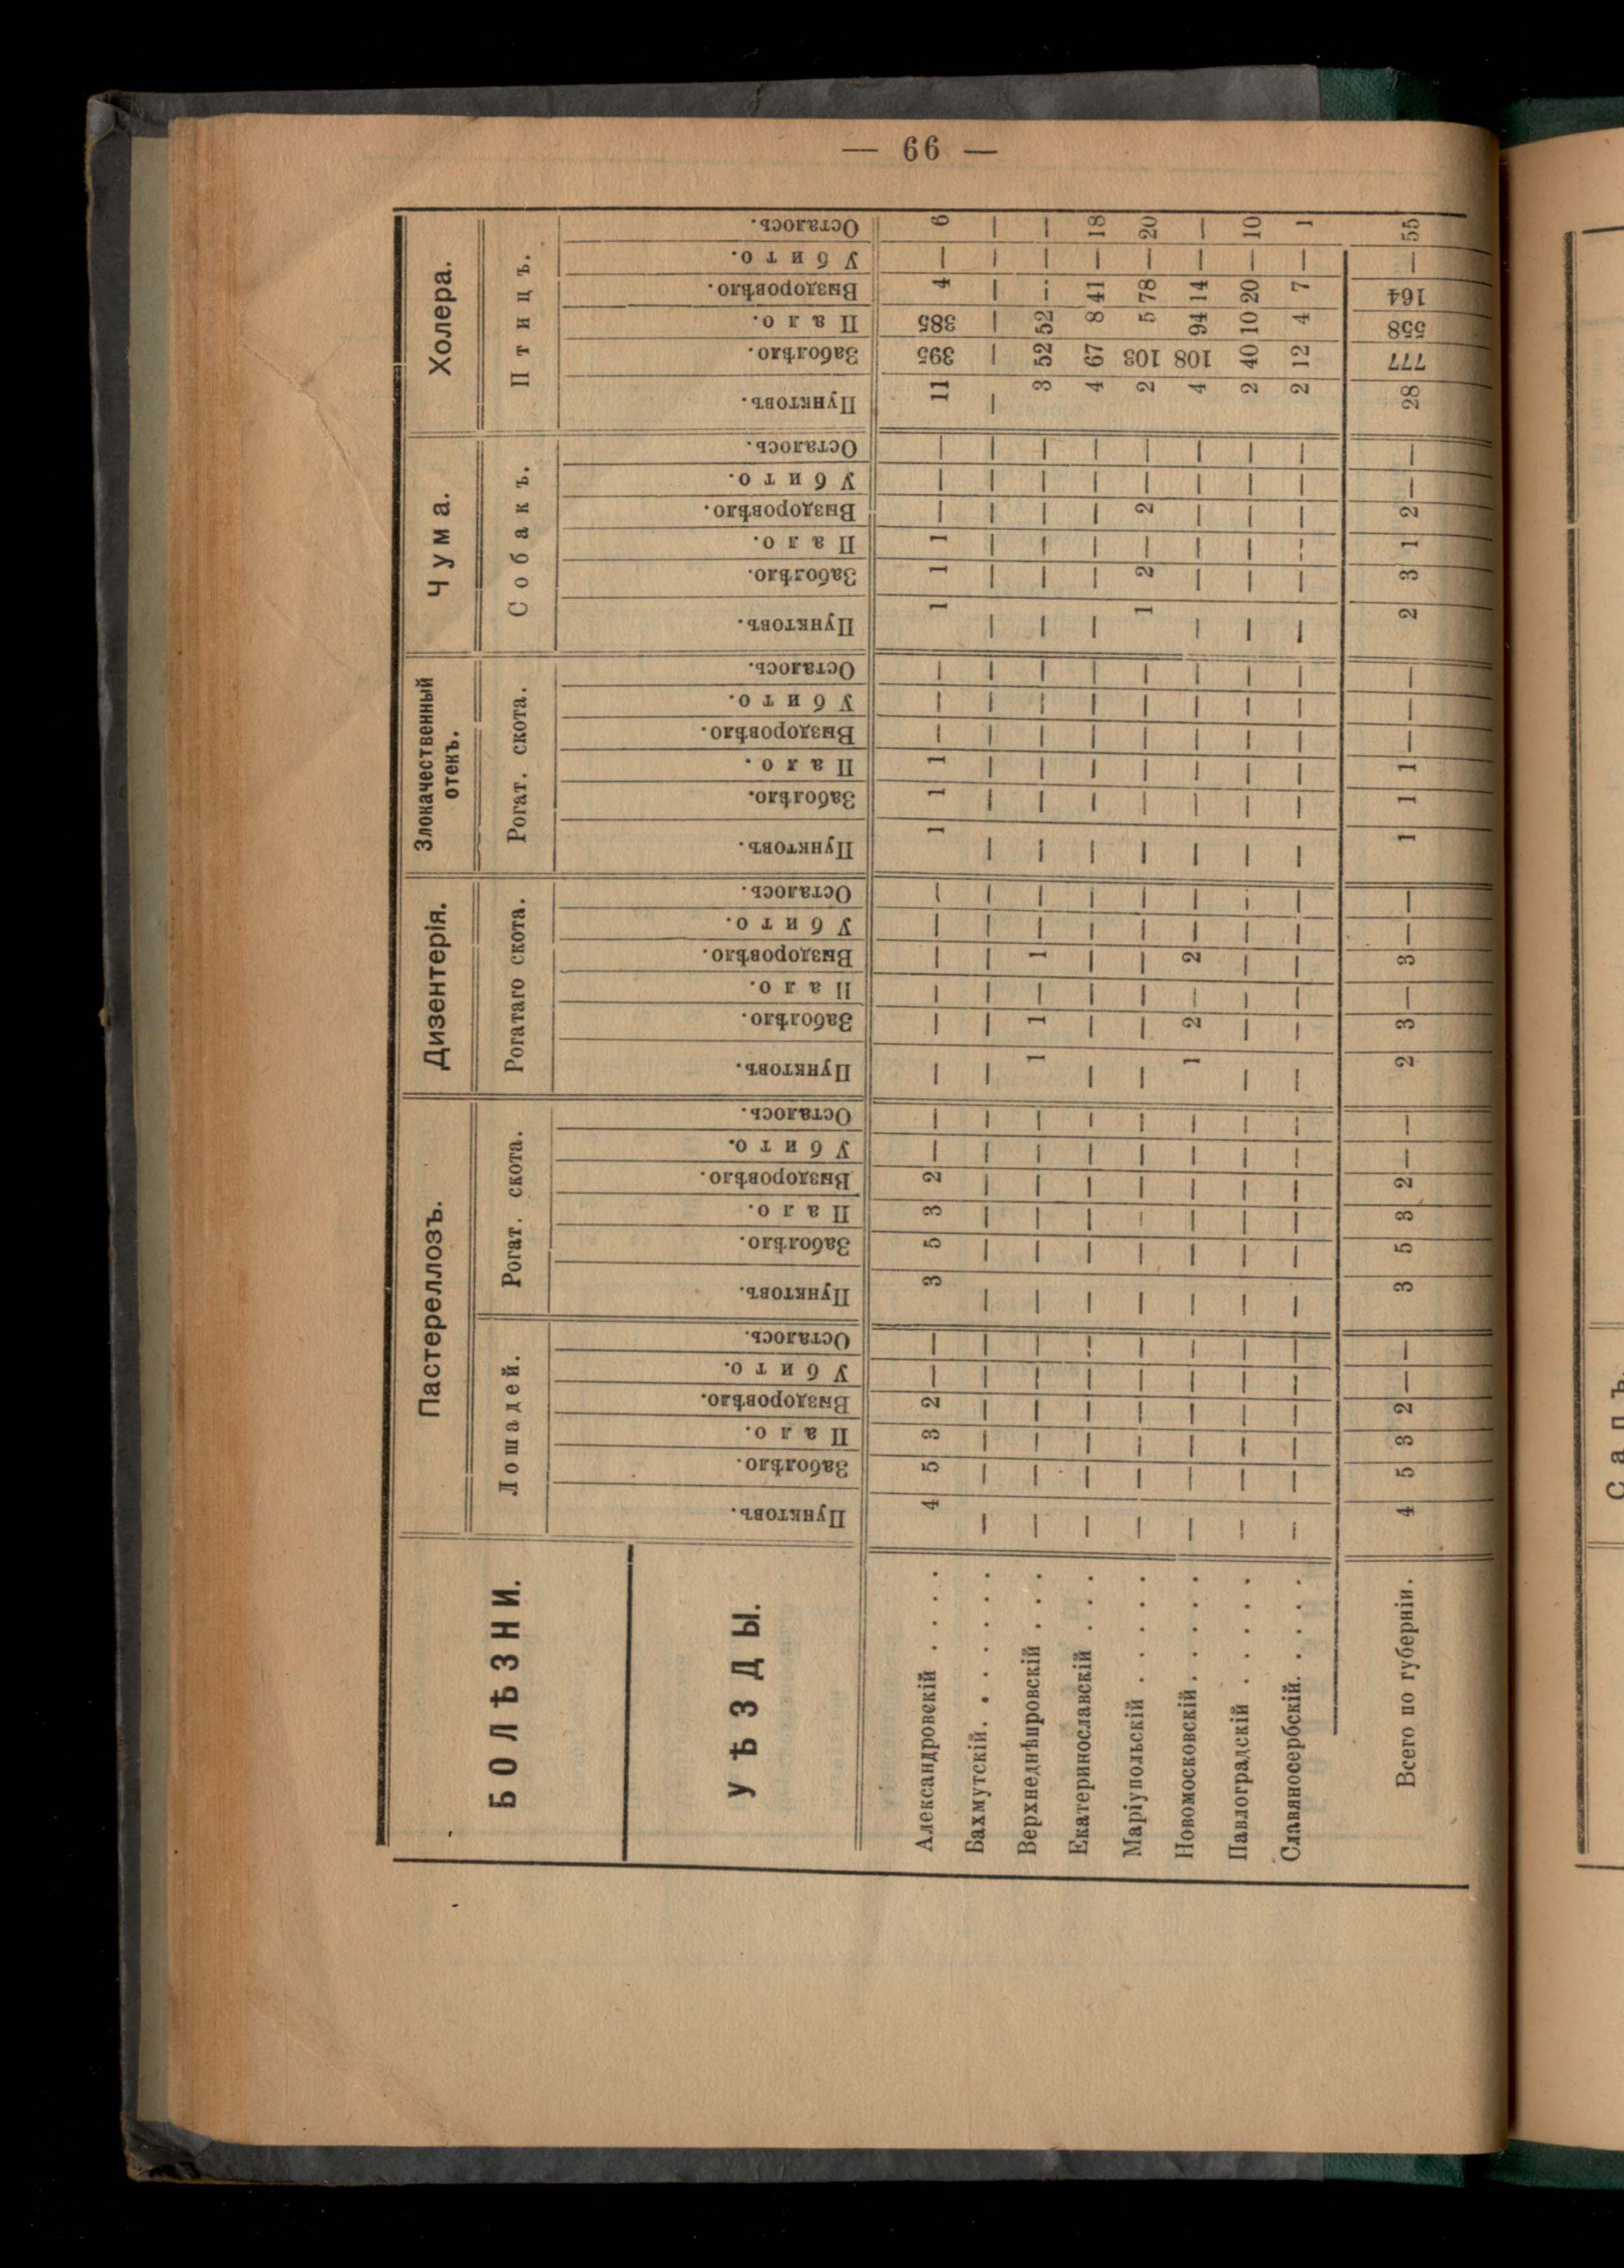 — 66 —
БОЛѢЗНИ.
УѢЗДЫ.
Пастереллозъ.
Дизентерія.
Злокачественный
отекъ.
Чума.
Холера.
Лошадей.
Рогат. скота.
Рогатаго скота.
Рогат. скота.
Собакъ.
Птицъ.
Пунктовъ. Заболѣло. Пало. Выздоровѣло. Убито. Осталось. Пунктовъ. Заболѣло. Пало. Выздоровѣло. Убито. Осталось. Пунктовъ. Заболѣло. Пало. Выздоровѣло. Убито. Осталось. Пунктовъ. Заболѣло. Пало. Выздоровѣло. Убито. Осталось. Пунктовъ. Заболѣло. Пало. Выздоровѣло. Убито. Осталось. Пунктовъ. Заболѣло. Пало. Выздоровѣло. Убито. Осталось.
Александровскій . . . . 4 5 3 2 — — 3 5 3 2 — — — — — — — — 1 1 1 — — — 1 1 1 — — — 11 395 385 4 — 6
Бахмутскій. . . . . . . — — — — — — — — — — — — — — — — — — — — — — — — — — — — — — — — — — — —
Верхнеднѣпровскій . . . — — — — — — — — — — — — 1 1 — 1 — — — — — — — — — — — — — — 3 52 52 — — —
Екатеринославскій . . . — — — — — — — — — — — — — — — — — — — — — — — — — — — — — — 4 67 8 41 — 18
Маріупольскій . . . . . — — — — — — — — — — — — — — — — — — — — — — — — 1 2 — 2 — — 2 103 5 78 — 20
Новомосковскій . . . . . — — — — — — — — — — — — 1 2 — 2 — — — — — — — — — — — — — — 4 108 94 14 — —
Павлоградскій . . . . . — — — — — — — — — — — — — — — — — — — — — — — — — — — — — — 2 40 10 20 — 10
Славяносербскій. . . . . — — — — — — — — — — — — — — — — — — — — — — — — — — — — — — 2 12 4 7 — 1
Всего по губерніи. 4 5 3 2 — — 3 5 3 2 — — 2 3 — 3 — — 1 1 1 — — — 2 3 1 2 — — 28 777 558 164 — 55